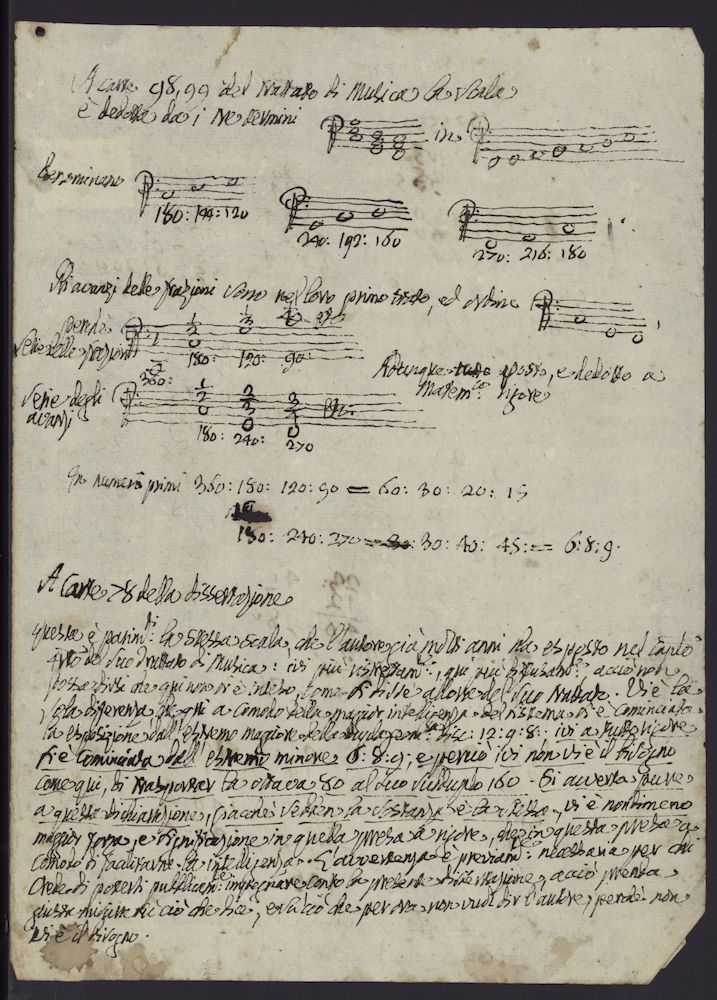 A carte 98, 99 del Trattato di Musica la Scala
è dedotta da i tre termini in
Denominano
180: 144: 120
240: 192: 160
270: 216: 180
Gli avanzi delle frazioni sono nel loro primo , ed ordine
perchè 1 1/2 1/3
Serie delle frazioni
360: 180: 120: 90:
Serie degli avanzi 1/2 2/3 3/4
180: 240: 270
Adunque tutto è posto, e dedotto a
Matem.co rigore
In numeri primi 360: 180: 120: 90 = 60: 30: 20: 15
180: 240: 270 = 30: 40: 45: = 6: 8: 9.
A Carte 78 della dissertazione
Questa è parim.ti la stessa scala, che l'autore già molti anni ha esposto nel Capitolo
del suo Trattato di Musica: ivi più ristrettam.te, qui più diffusam.te, acciò non
possa dirsi che qui non si è inteso, come di dire a del suo Trattato. Vi è la
sola differenza che qui a comodo della maggior intelligenza del sistema si è cominciata
la esposizione dall'estremo maggiore della 12: 9: 8: ivi a tutto rigore
si è cominciata dall'estremo minore 6: 8: 9: e perciò ivi non vi è il bisogno
come qui, di trasportar la ottava 80 al suo sudduplo 160. Si avverta
a questa dichiarazione, giacchè sebben la sostanza è la stessa, vi è nondimeno
maggior forza, e dignificazione in quella presa a rigore, che in questa presa a
comodo di facilitarne la intelligenza. L'avvertenza è necessaria per chi
crede di potersi pubblicam.te insegnare contro la presente dissertazione, acciò prenda
giusta misura di ciò che dice, e di ciò che per ora non vuol dir l'autore, perchè non
vi è il bisogno.